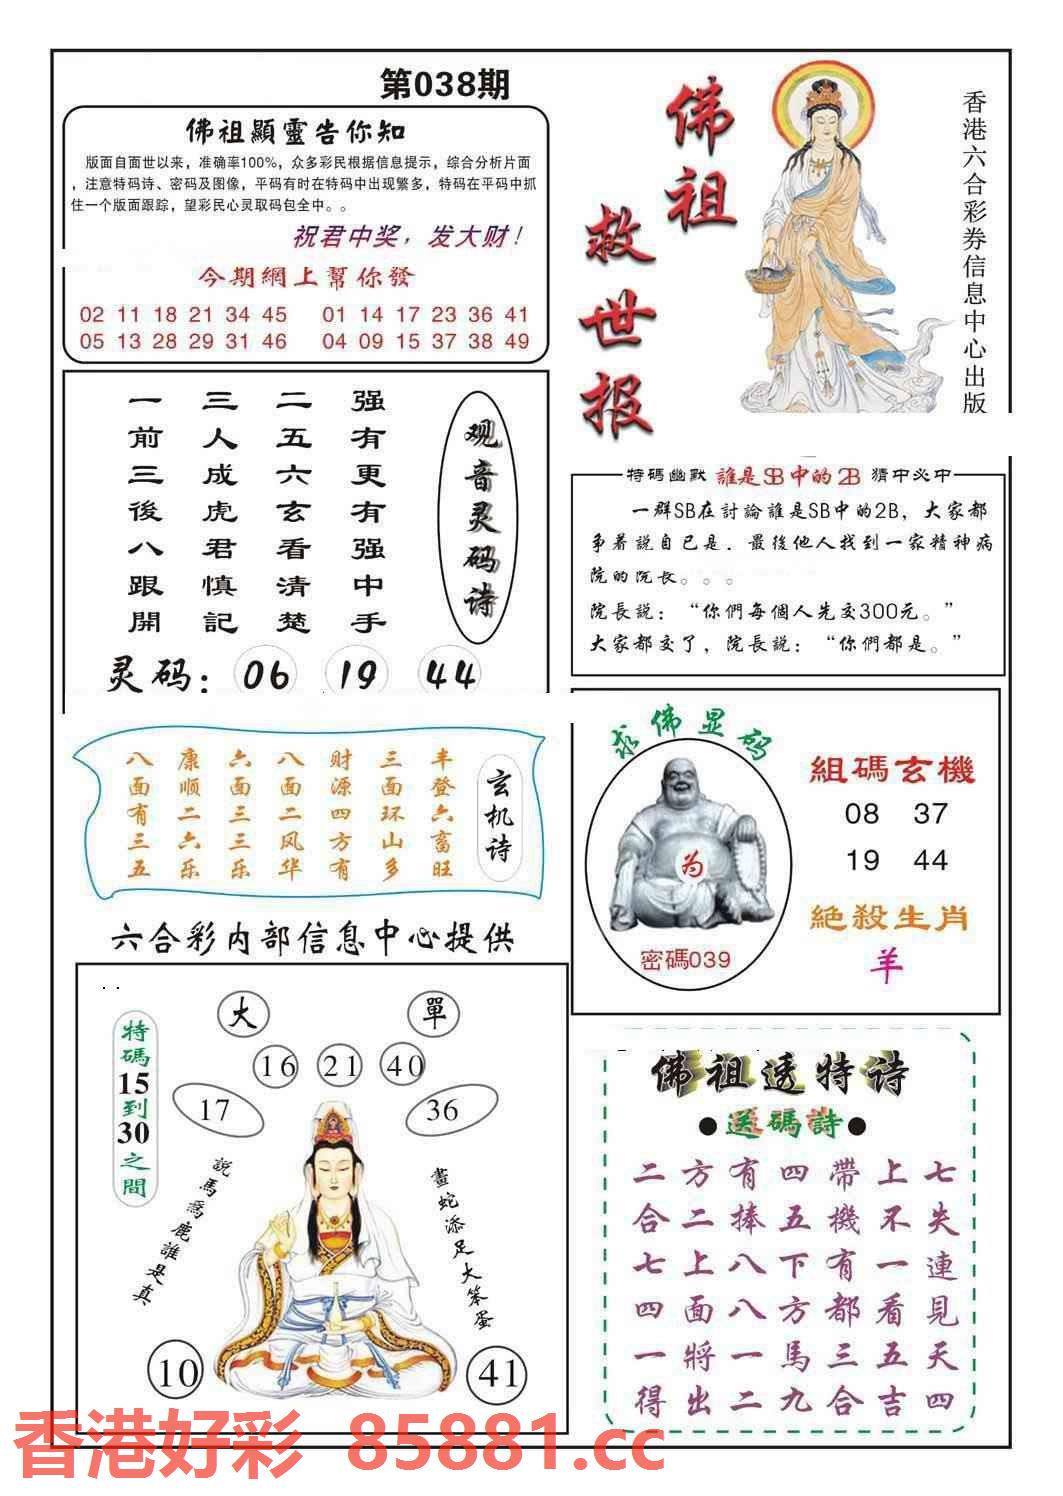 第038期
佛祖顯靈告你知
版面自面世以来，准确率100%，众多彩民根据信息提示，综合分析片面
，注意特码诗、密码及图像，平码有时在特码中出现繁多，特码在平码中抓
住一个版面跟踪，望彩民心灵取码包全中。。
祝君中奖，发大财！
今期網上幫你發
02 11 18 21 34 45 01 14 17 23 36 41
05 13 28 29 31 46 04 09 15 37 38 49
佛祖
救世报
香港六合彩券信息中心出版
观音灵码诗
强有更有强中手
二五六玄看清楚
三人成虎君慎記
一前三後八跟開
灵码：06 19 44
特碼幽默 誰是SB中的2B 猜中必中
一群SB在討論誰是SB中的2B，大家都
争着説自己是．最後他人找到一家精神病
院的院长。。。
院長説：“你們每個人先交300元。”
大家都交了，院長説：“你們都是。”
玄机诗
丰登六畜旺
三面环山多
财源四方有
八面二风华
六面三三乐
康顺二六乐
八面有三五
求佛显码
为
密碼039
組碼玄機
08 37
19 44
絶殺生肖
羊
六合彩内部信息中心提供
大 單
16 21 40
17 36
特碼15到30之間
説馬爲鹿誰是真
畫蛇添足大笨蛋
10 41
佛祖透特诗
●送碼詩●
七失連見天四
上不一看五吉
帶機有都三合
四五下方馬九
有捧八八一二
方二上面將出
二合七四一得
香港好彩 85881.cc